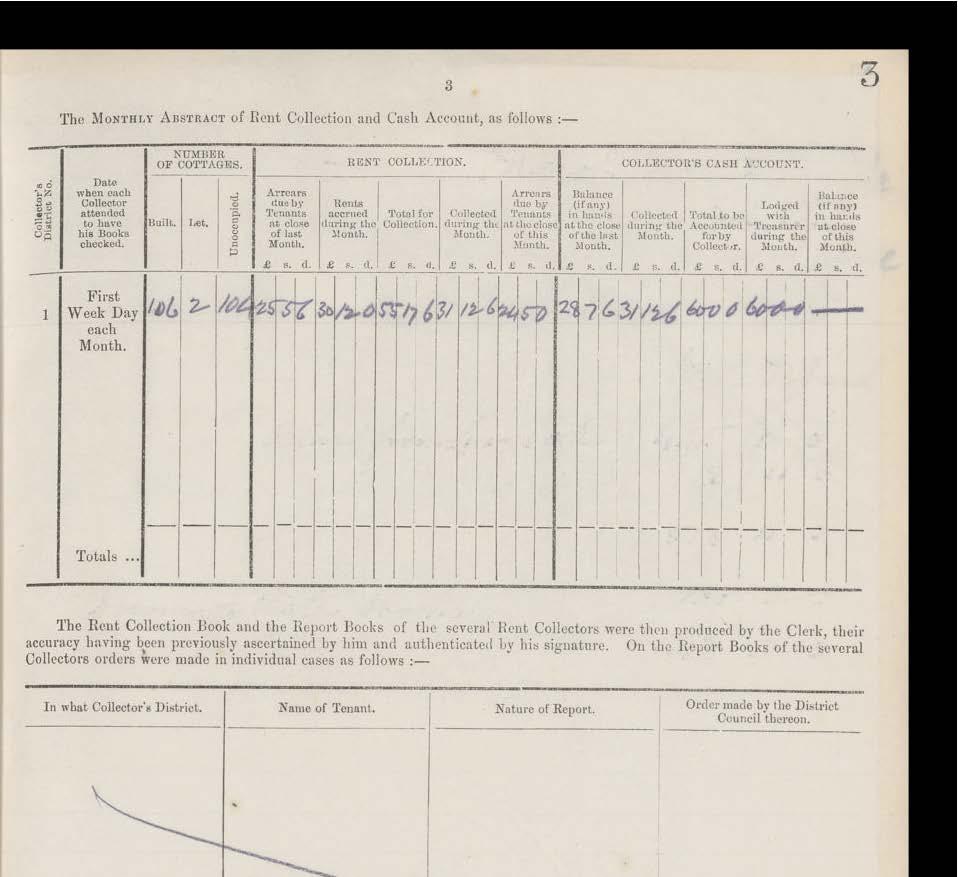 3
3
The MONTHLY ABSTRACT of Rent Collection and Cash Account, as follows :—
Collector's District No.
Date when each Collector attended to have his Books checked.
NUMBER OF COTTAGES.
Built.
Let.
Unoccupied.
RENT COLLECTION.
Arrears due by Tenants at close of last Month.
Rents accrued during the Month.
Total for Collection.
Collected during the Month.
Arrears due by Tenants at the close of this Month.
COLLECTOR'S CASH ACCOUNT.
Balance (if any) in hands at the close of the last Month.
Collected during the Month.
Total to be Accounted for by Collector.
Lodged with Treasurer during the Month.
Balance (if any) in hands at close of this Month.
£ s. d. £ s. d. £ s. d. £ s. d. £ s. d. £ s. d. £ s. d. £ s. d. £ s. d. £ s. d.
1 First Week Day each Month. 106 2 104 25 5 6 30 12 0 55 17 6 31 12 6 24 5 0 28 7 6 31 12 6 60 0 0 60 0 0 —
Totals ...
The Rent Collection Book and the Report Books of the several Rent Collectors were then produced by the Clerk, their
accuracy having been previously ascertained by him and authenticated by his signature. On the Report Books of the several
Collectors orders were made in individual cases as follows :—
In what Collector's District.
Name of Tenant.
Nature of Report.
Order made by the District Council thereon.